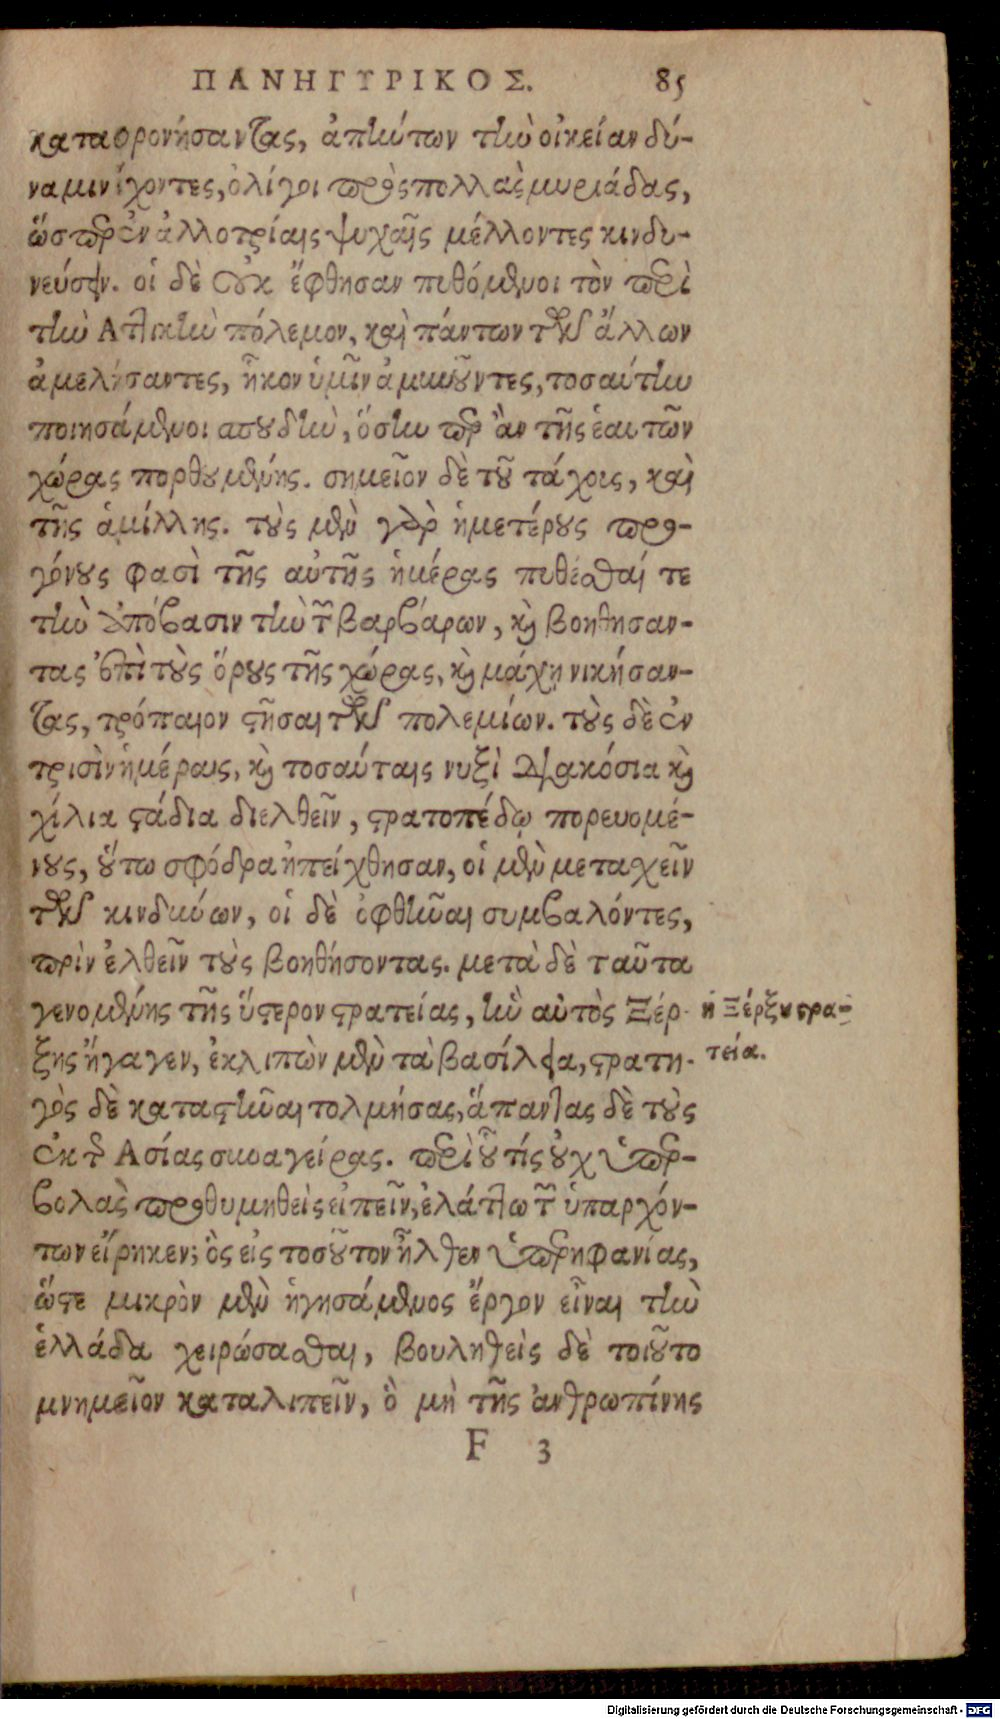 ΠΑΝΗΓΥΡΙΚΟΣ. 85
καταφρονήσαντας, ἀπήντων τὴν οἰκείαν δύ-
ναμιν ἔχοντες, ὀλίγοι πρὸς πολλὰς μυριάδας,
ὥσπερ ἐν ἀλλοτρίαις ψυχαῖς μέλλοντες κινδυ-
νεύσειν. οἱ δὲ οὐκ ἔφθησαν πυθόμενοι τὸν περὶ
τὴν Ἀττικὴν πόλεμον, καὶ πάντων τῶν ἄλλων
ἀμελήσαντες, ἧκον ὑμῖν ἀμυνοῦντες, τοσαύτην
ποιησάμενοι σπουδὴν, ὅσην περ ἂν τῆς ἑαυτῶν
χώρας πορθουμένης. σημεῖον δὲ τοῦ τάχους, καὶ
τῆς ἁμίλλης. τοὺς μὲν γὰρ ἡμετέρους προ-
γόνους φασὶ τῆς αὐτῆς ἡμέρας πυθέσθαι τε
τὴν ἀπόβασιν τὴν τῶν βαρβάρων, καὶ βοηθησαν-
τας ἐπὶ τοὺς ὅρους τῆς χώρας, καὶ μάχῃ νικήσαν-
τας, τρόπαιον στῆσαι τῶν πολεμίων. τοὺς δὲ ἐν
τρισὶν ἡμέραις, καὶ τοσαύταις νυξὶ διακόσια καὶ
χίλια στάδια διελθεῖν, στρατοπέδῳ πορευομέ-
νους, οὕτω σφόδρα ἠπείχθησαν, οἱ μὲν μετασχεῖν
τῶν κινδύνων, οἱ δὲ ὀφθῆναι συμβαλόντες,
πρὶν ἐλθεῖν τοὺς βοηθήσοντας. μετὰ δὲ ταῦτα
γενομένης τῆς ὕστερον στρατείας, ἣν αὐτὸς Ξέρ-
ξης ἤγαγεν, ἐκλιπὼν μὲν τὰ βασίλεια, στρατη-
γὸς δὲ καταστῆναι τολμήσας, ἅπαντας δὲ τοὺς
ἐκ τῆς Ἀσίας συναγείρας. περὶ οὗ τίς οὐχ ὑπερ-
βολὰς προθυμηθεὶς εἰπεῖν, ἐλάττω τῶν ὑπαρχόν-
των εἴρηκεν; ὃς εἰς τοσοῦτον ἦλθεν ὑπερηφανίας,
ὥστε μικρὸν μὲν ἡγησάμενος ἔργον εἶναι τὴν
ἑλλάδα χειρώσασθαι, βουληθεὶς δὲ τοιοῦτο
μνημεῖον καταλιπεῖν, ὃ μὴ τῆς ἀνθρωπίνης
F 3
ἡ Ξέρξου στρα-
τεία.
Digitalisierung gefördert durch die Deutsche Forschungsgemeinschaft - DFG